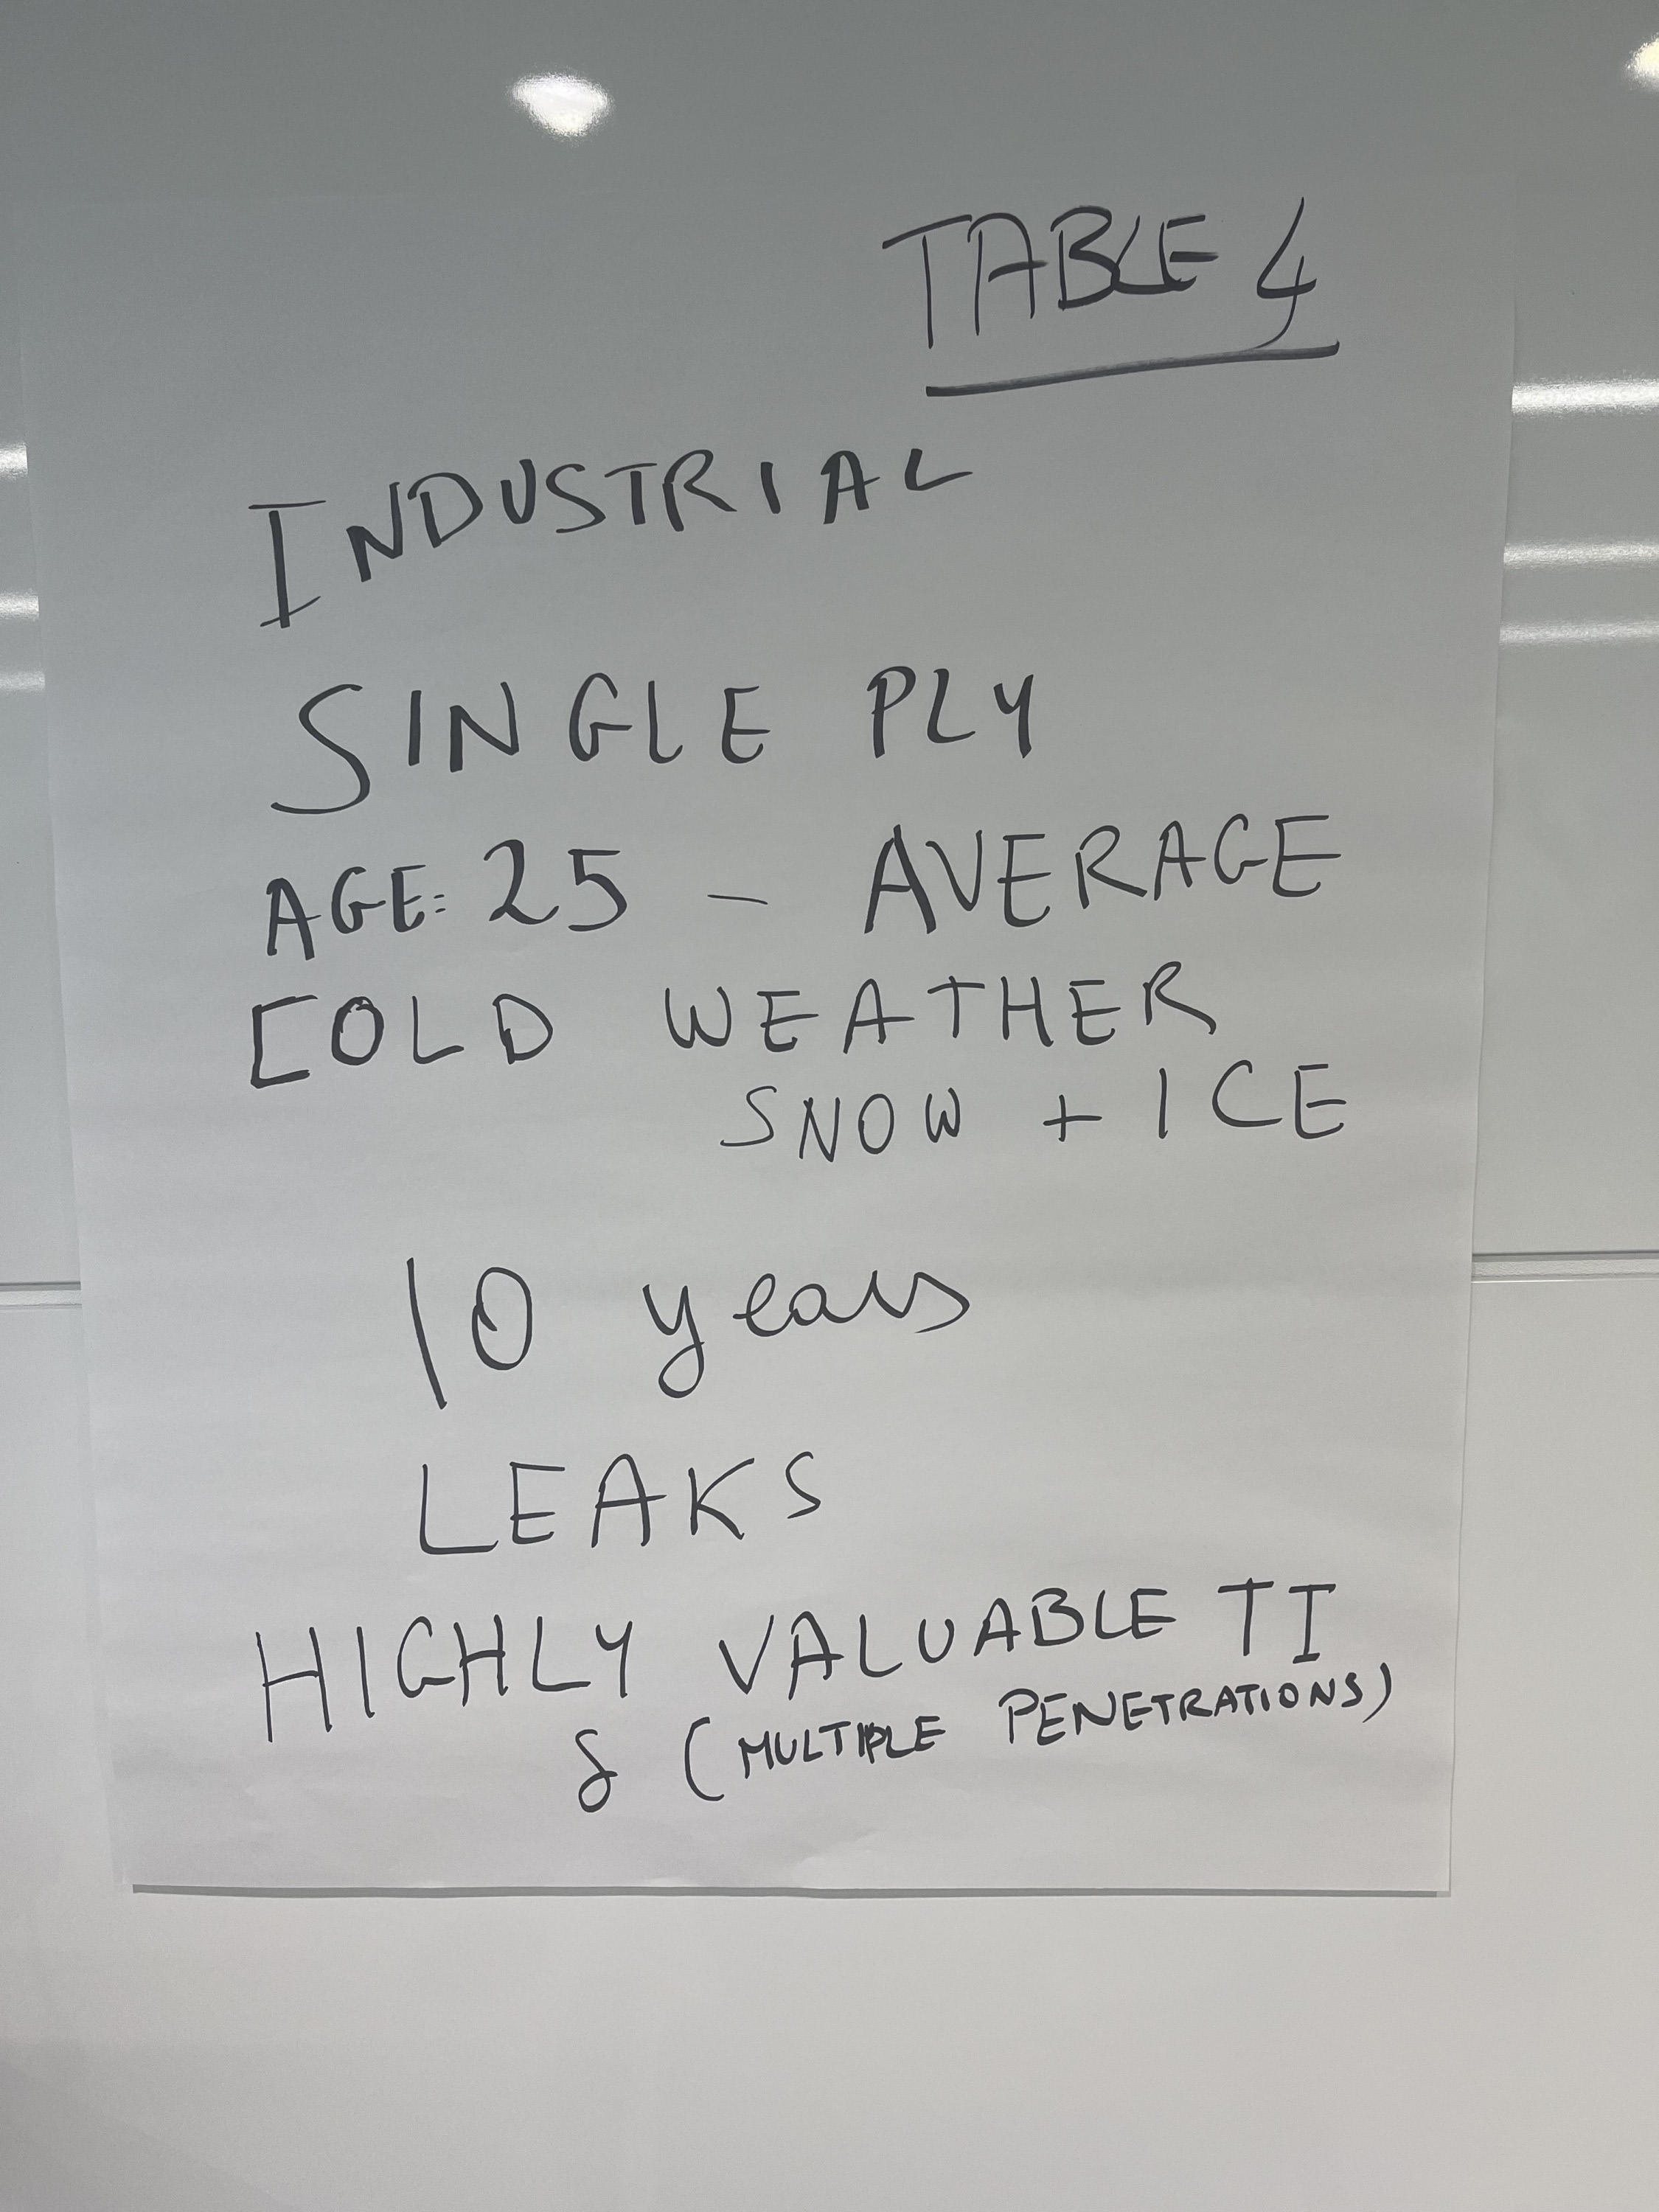 TABLE 4
INDUSTRIAL
SINGLE PLY
AGE: 25 - AVERAGE
COLD WEATHER
SNOW + ICE
10 years
LEAKS
HIGHLY VALUABLE TI
& (MULTIPLE PENETRATIONS)